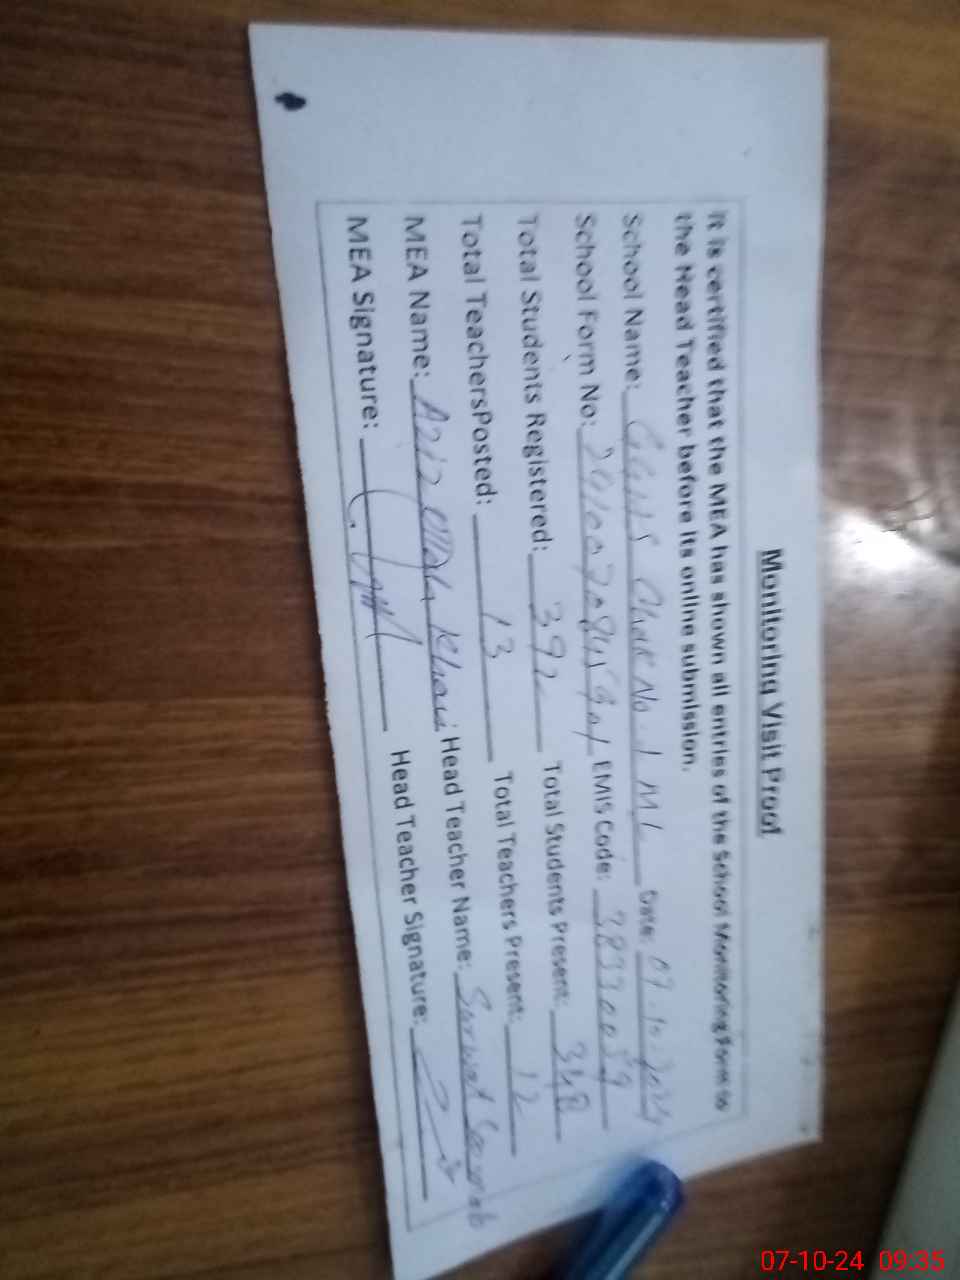 Monitoring Visit Proof
It is certified that the MEA has shown all entries of the School Monitoring Form to
the Head Teacher before its online submission.
School Name: GGHS Chak No 1 ML Date: 07.10.2024
School Form No: EMIS Code: 38330059
Total Students Registered: 392 Total Students Present: 348
Total TeachersPosted: 13 Total Teachers Present: 12
MEA Name: Aziz Ullah Khan Head Teacher Name: Sarwat
MEA Signature: Head Teacher Signature:
07-10-24 09:35